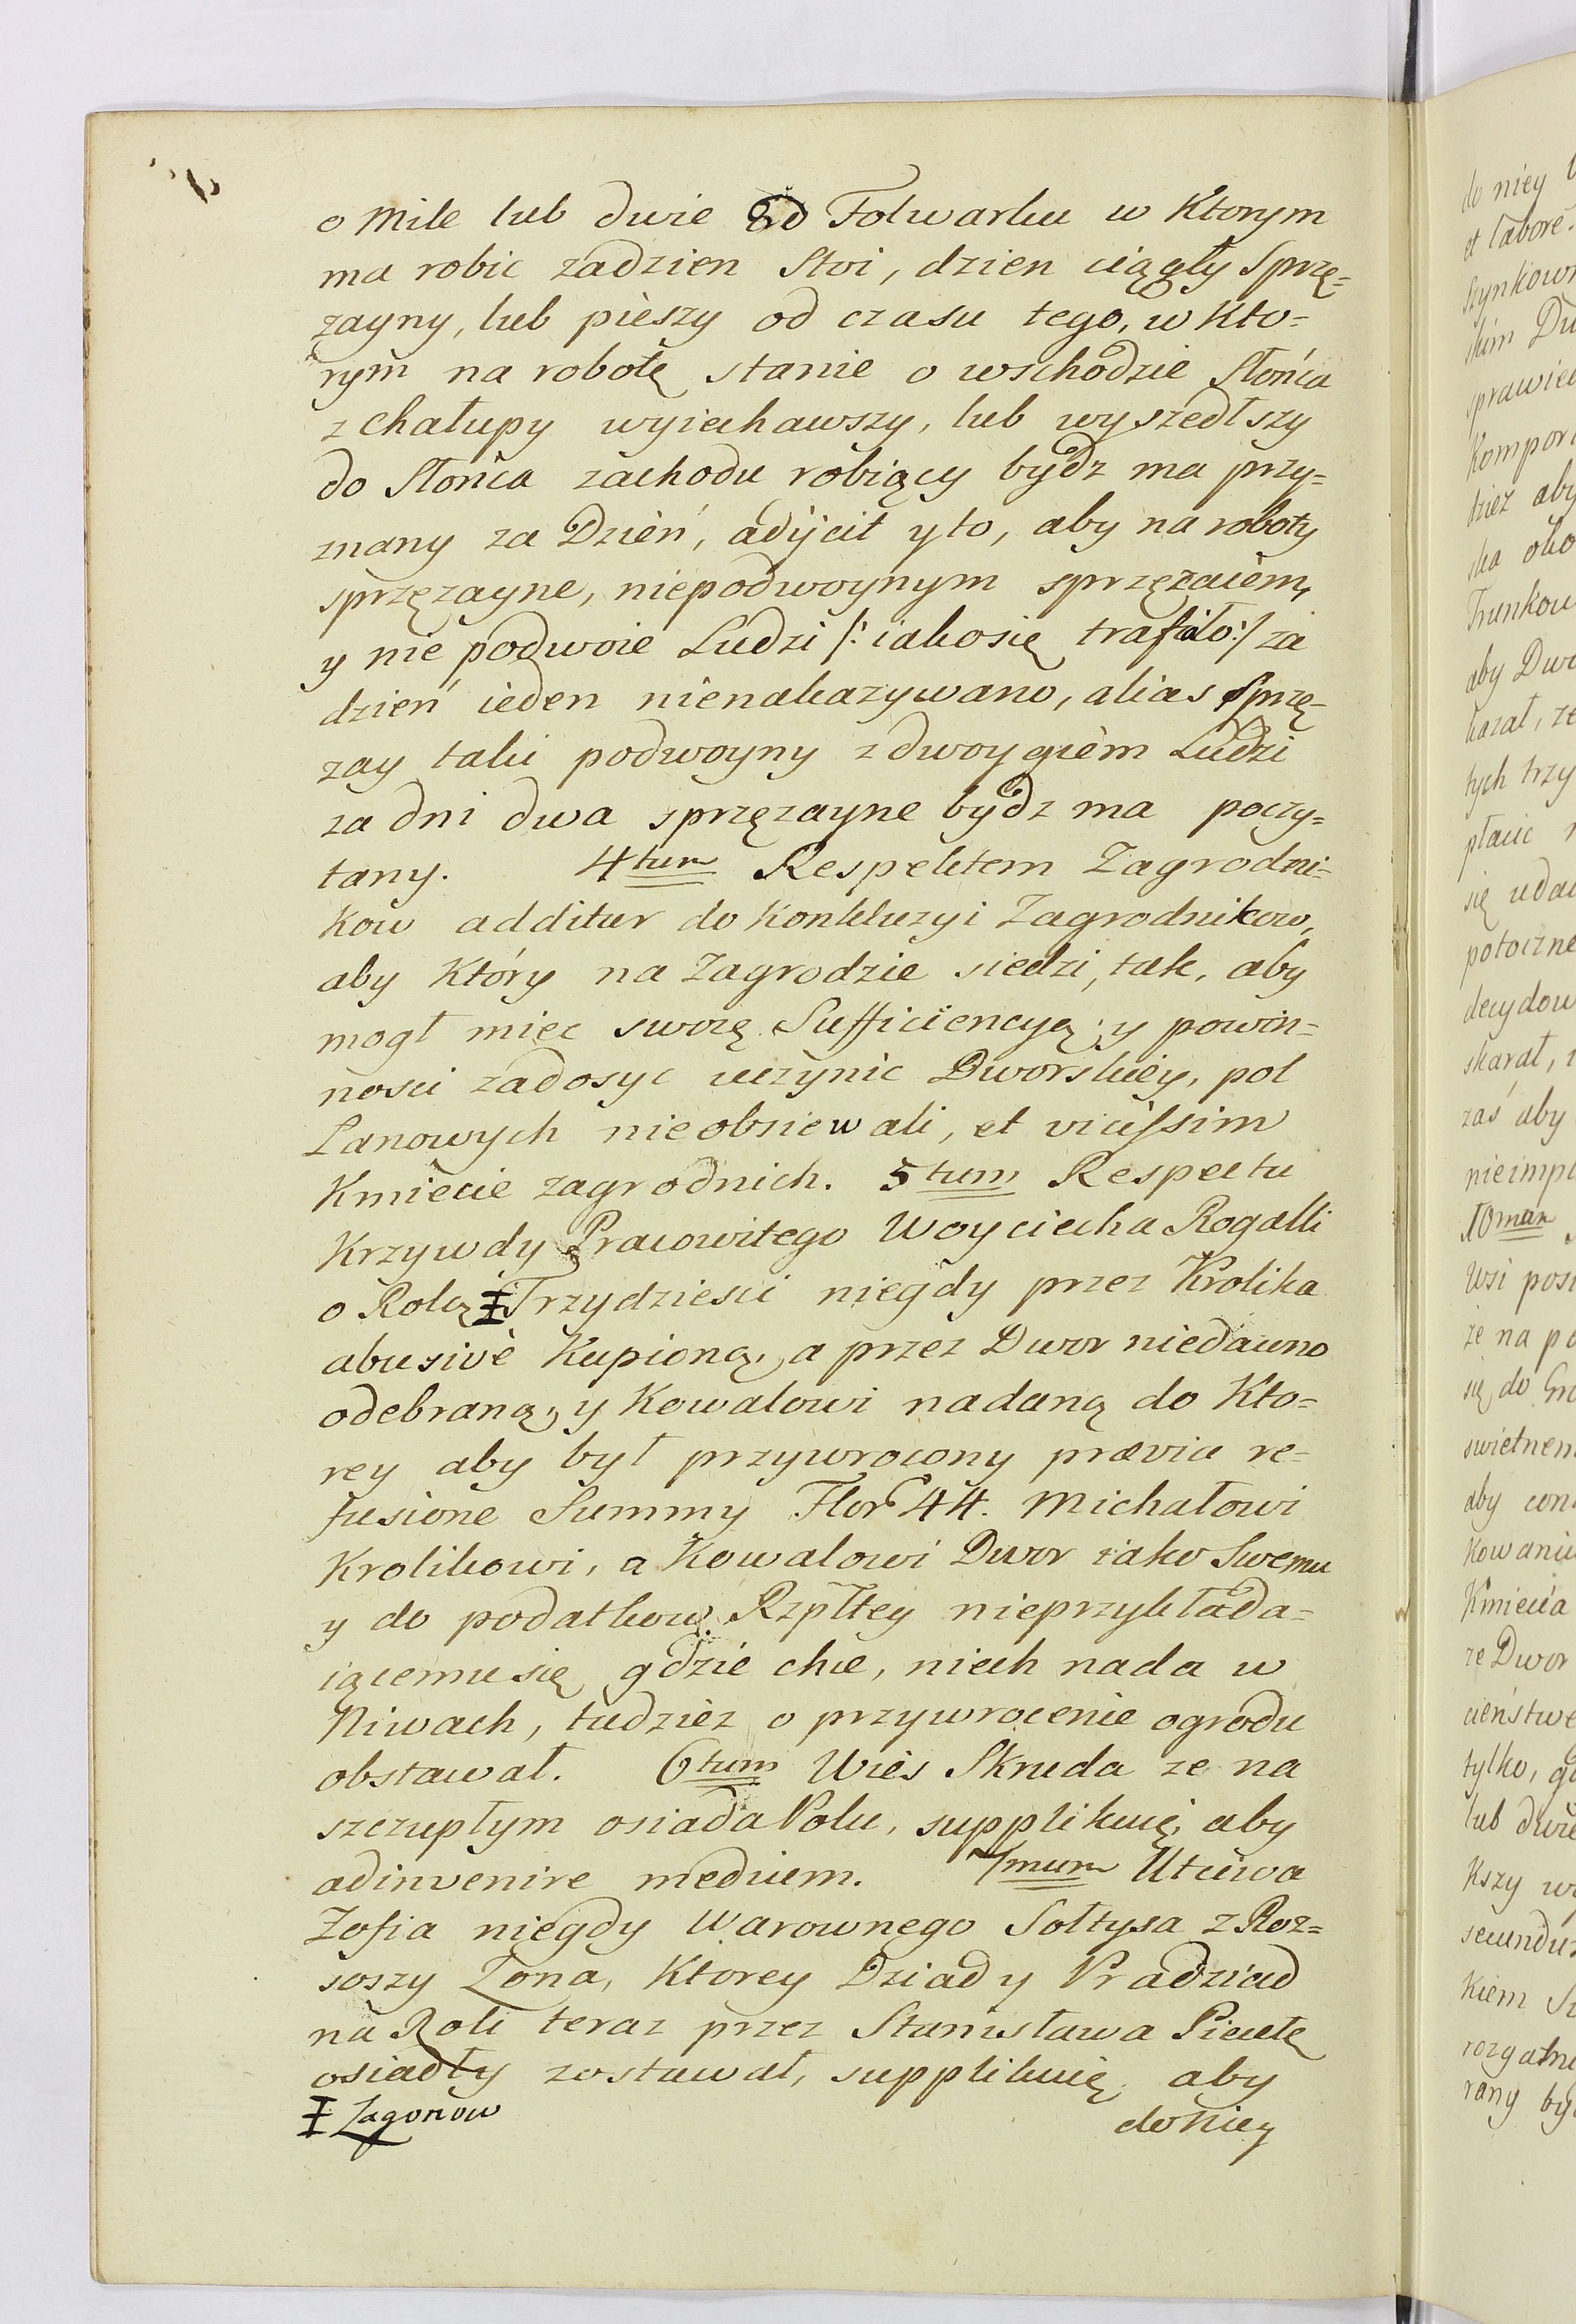 o Mile lub dwie od Folwarku w Ktorym
ma robic zadzien Stoi, dzien ciągły Sprzę=
zayny, lub pieszy od czasu tego, w Kto=
rym na robotę stanie o wschodzie Słońca
z chałupy wyiechawszy, lub wyszedłszy
do Słońca zachodu robiący bydz ma przy=
znany za Dzień, adijcit y to, aby na roboty
sprzęzayne, niepodwoynym sprzęzaiem,
y nie podwoie Ludzi /: iako się trafiało :/ za
dzień ieden nienakazywano, alias Sprzę=
zay taki podwoyny z dwoygiem Ludzi
za dni dwa sprzęzayne bydz ma poczy=
tany. 4tum Respektem Zagrodni=
kow additur do Konkluzyi Zagrodnikow,
aby Który na Zagrodzie siedzi, tak, aby
mogł miec swoię Sufficiencyą; y powin=
nosci zadosyc uczynic Dworskiey, pol
Lanowych nieobsiewali, et vicissim
Kmiecie zagrodnich. 5tum Respectu
Krzywdy Pracowitego Woyciecha Rogalli
o Rolą ‡ Trzydziesci niegdy przez Krolika
abusivè Kupioną, a przez Dwor niedawno
odebraną, y Kowalowi nadaną do Kto=
rey aby był przywrocony prævia re=
fusione Summy Flor 44. Michałowi
Krolikowi, a Kowalowi Dwor iako Swemu
y do podatkow Rzpltey nieprzykłada=
iącemu się gdzie chce, niech nada w
Niwach, tudziez o przywrocenie ogrodu
obstawał. 6tum Wies Skruda ze na
szczupłym osiada Polu, supplikuię, aby
adinvenire medium. 7mum Utciwa
Zofia niegdy Warownego Sołtysa z Roz=
soszy Zona, Ktorey Dziad y Pradziad
na Roli teraz przez Stanisława Piecutę
osiadły zostawał, supplikuię aby
‡ Zagonow
do niey
do niey
et labore.
skim
aby